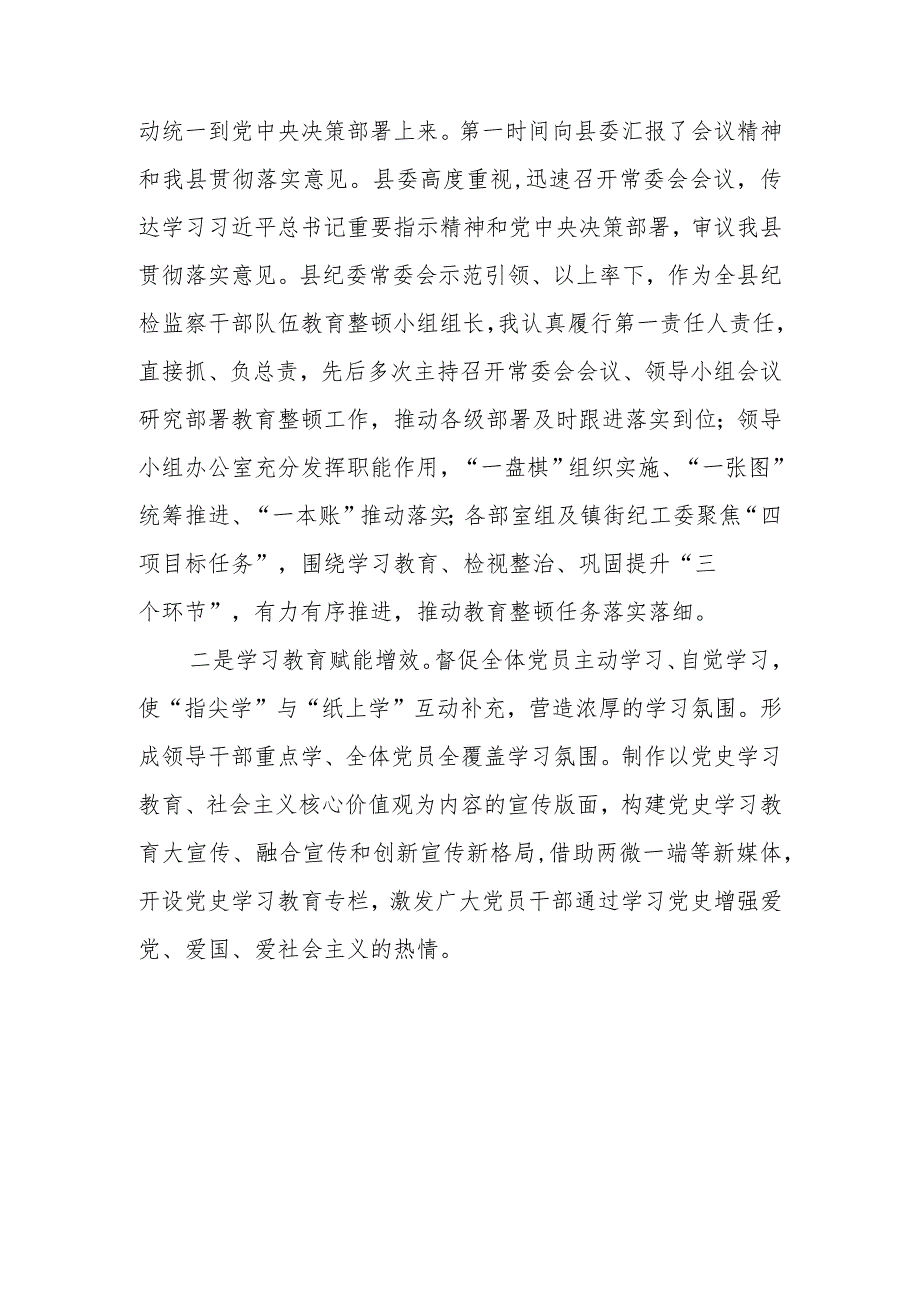 动统一到党中央决策部署上来。第一时间向县委汇报了会议精神
和我县贯彻落实意见。县委高度重视,迅速召开常委会会议，传
达学习习近平总书记重要指示精神和党中央决策部署，审议我县
贯彻落实意见。县纪委常委会示范引领、以上率下，作为全县纪
检监察干部队伍教育整顿小组组长,我认真履行第一责任人责任，
直接抓、负总责，先后多次主持召开常委会会议、领导小组会议
研究部署教育整顿工作，推动各级部署及时跟进落实到位；领导
小组办公室充分发挥职能作用，“一盘棋”组织实施、“一张图”
统筹推进、“一本账”推动落实；各部室组及镇街纪工委聚焦“四
项目标任务”，围绕学习教育、检视整治、巩固提升“三
个环节”，有力有序推进，推动教育整顿任务落实落细。
二是学习教育赋能增效。督促全体党员主动学习、自觉学习，
使“指尖学”与“纸上学”互动补充，营造浓厚的学习氛围。形
成领导干部重点学、全体党员全覆盖学习氛围。制作以党史学习
教育、社会主义核心价值观为内容的宣传版面，构建党史学习教
育大宣传、融合宣传和创新宣传新格局,借助两微一端等新媒体，
开设党史学习教育专栏，激发广大党员干部通过学习党史增强爱
党、爱国、爱社会主义的热情。